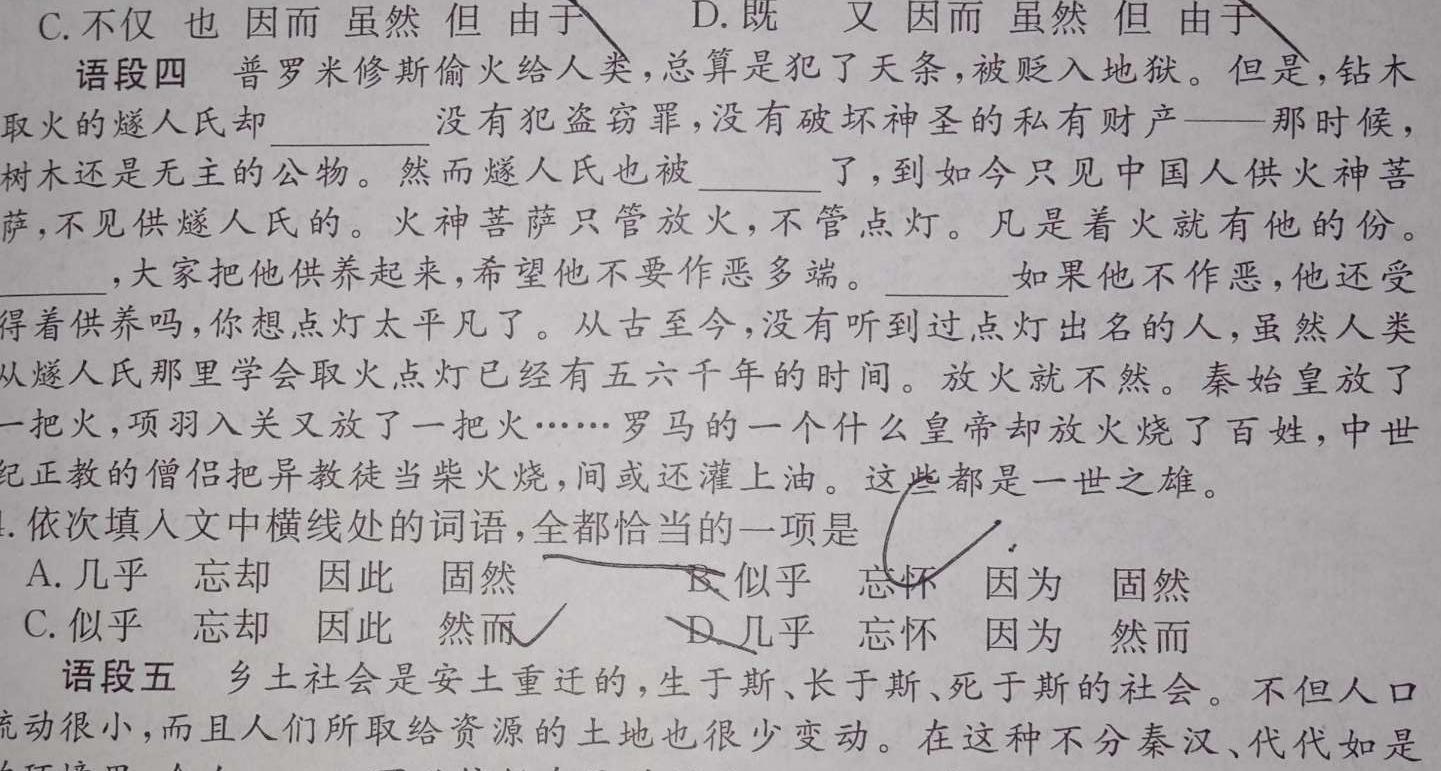 C.不仅 也 因而 虽然 但 由于 D.既 又 因而 虽然 但 由于
语段四 普罗米修斯偷火给人类,总算是犯了天条,被贬入地狱。但是,钻木
取火的燧人氏却______没有犯盗窃罪,没有破坏神圣的私有财产——那时候,
树木还是无主的公物。然而燧人氏也被______了,到如今只见中国人供火神菩
萨,不见供燧人氏的。火神菩萨只管放火,不管点灯。凡是着火就有他的份。
______,大家把他供养起来,希望他不要作恶多端。______如果他不作恶,他还受
得着供养吗,你想点灯太平凡了。从古至今,没有听到过点灯出名的人,虽然人类
从燧人氏那里学会取火点灯已经有五六千年的时间。放火就不然。秦始皇放了
一把火,项羽入关又放了一把火……罗马的一个什么皇帝却放火烧了百姓,中世
纪正教的僧侣把异教徒当柴火烧,间或还灌上油。这些都是一世之雄。
.依次填入文中横线处的词语,全都恰当的一项是
A.几乎 忘却 因此 固然 B.似乎 忘怀 因为 固然
C.似乎 忘却 因此 然而 D.几乎 忘怀 因为 然而
语段五 乡土社会是安土重迁的,生于斯、长于斯、死于斯的社会。不但人口
流动很小,而且人们所取给资源的土地也很少变动。在这种不分秦汉、代代如是